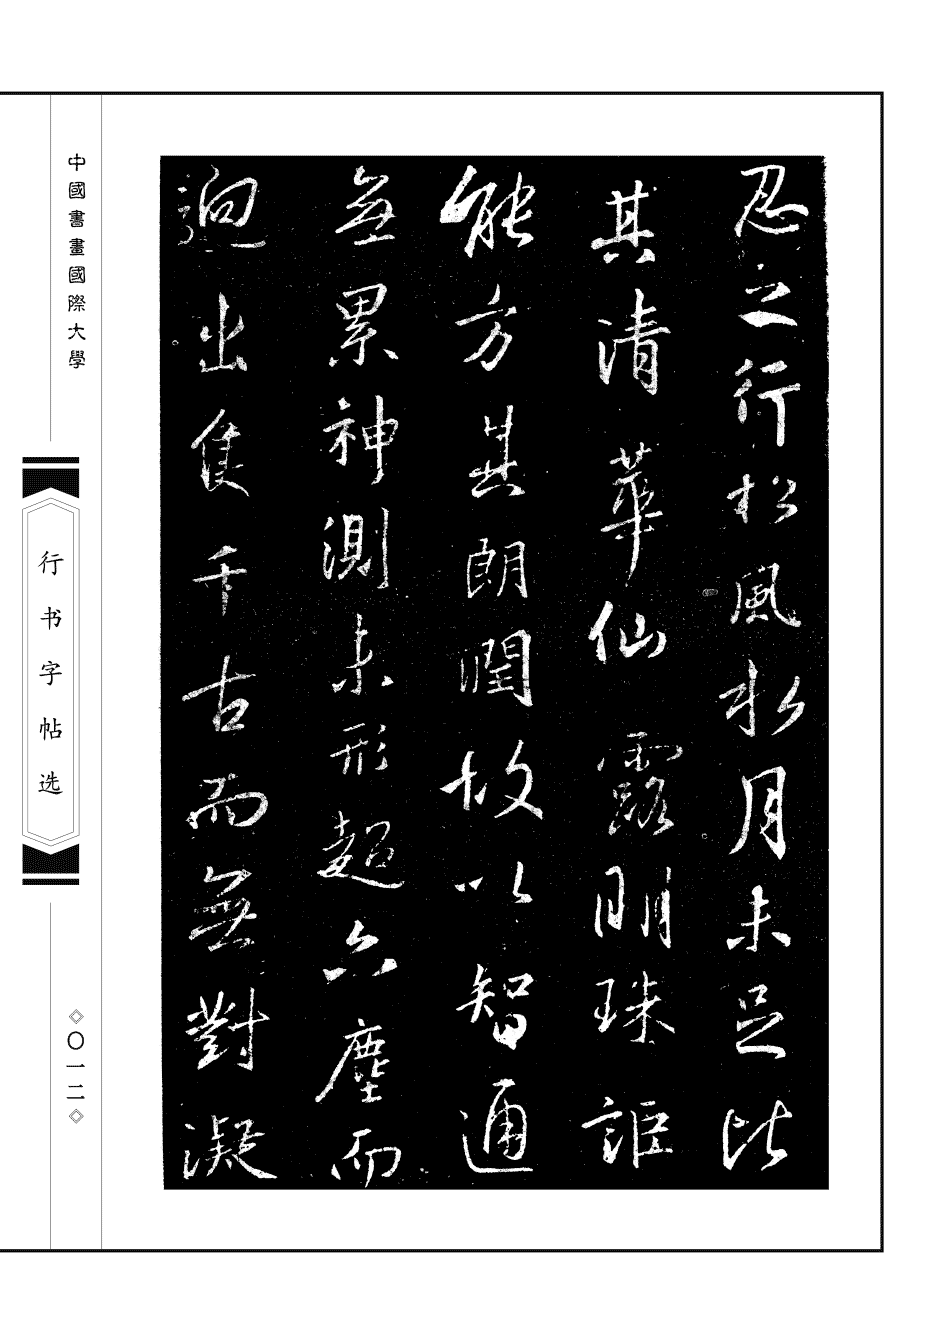 忍之行松風水月未足比
其清華仙露明珠詎
能方其朗潤故以智通
無累神測未形超六塵而
迥出隻千古而無對凝
中國書畫國際大學
行书字帖选
〇一二